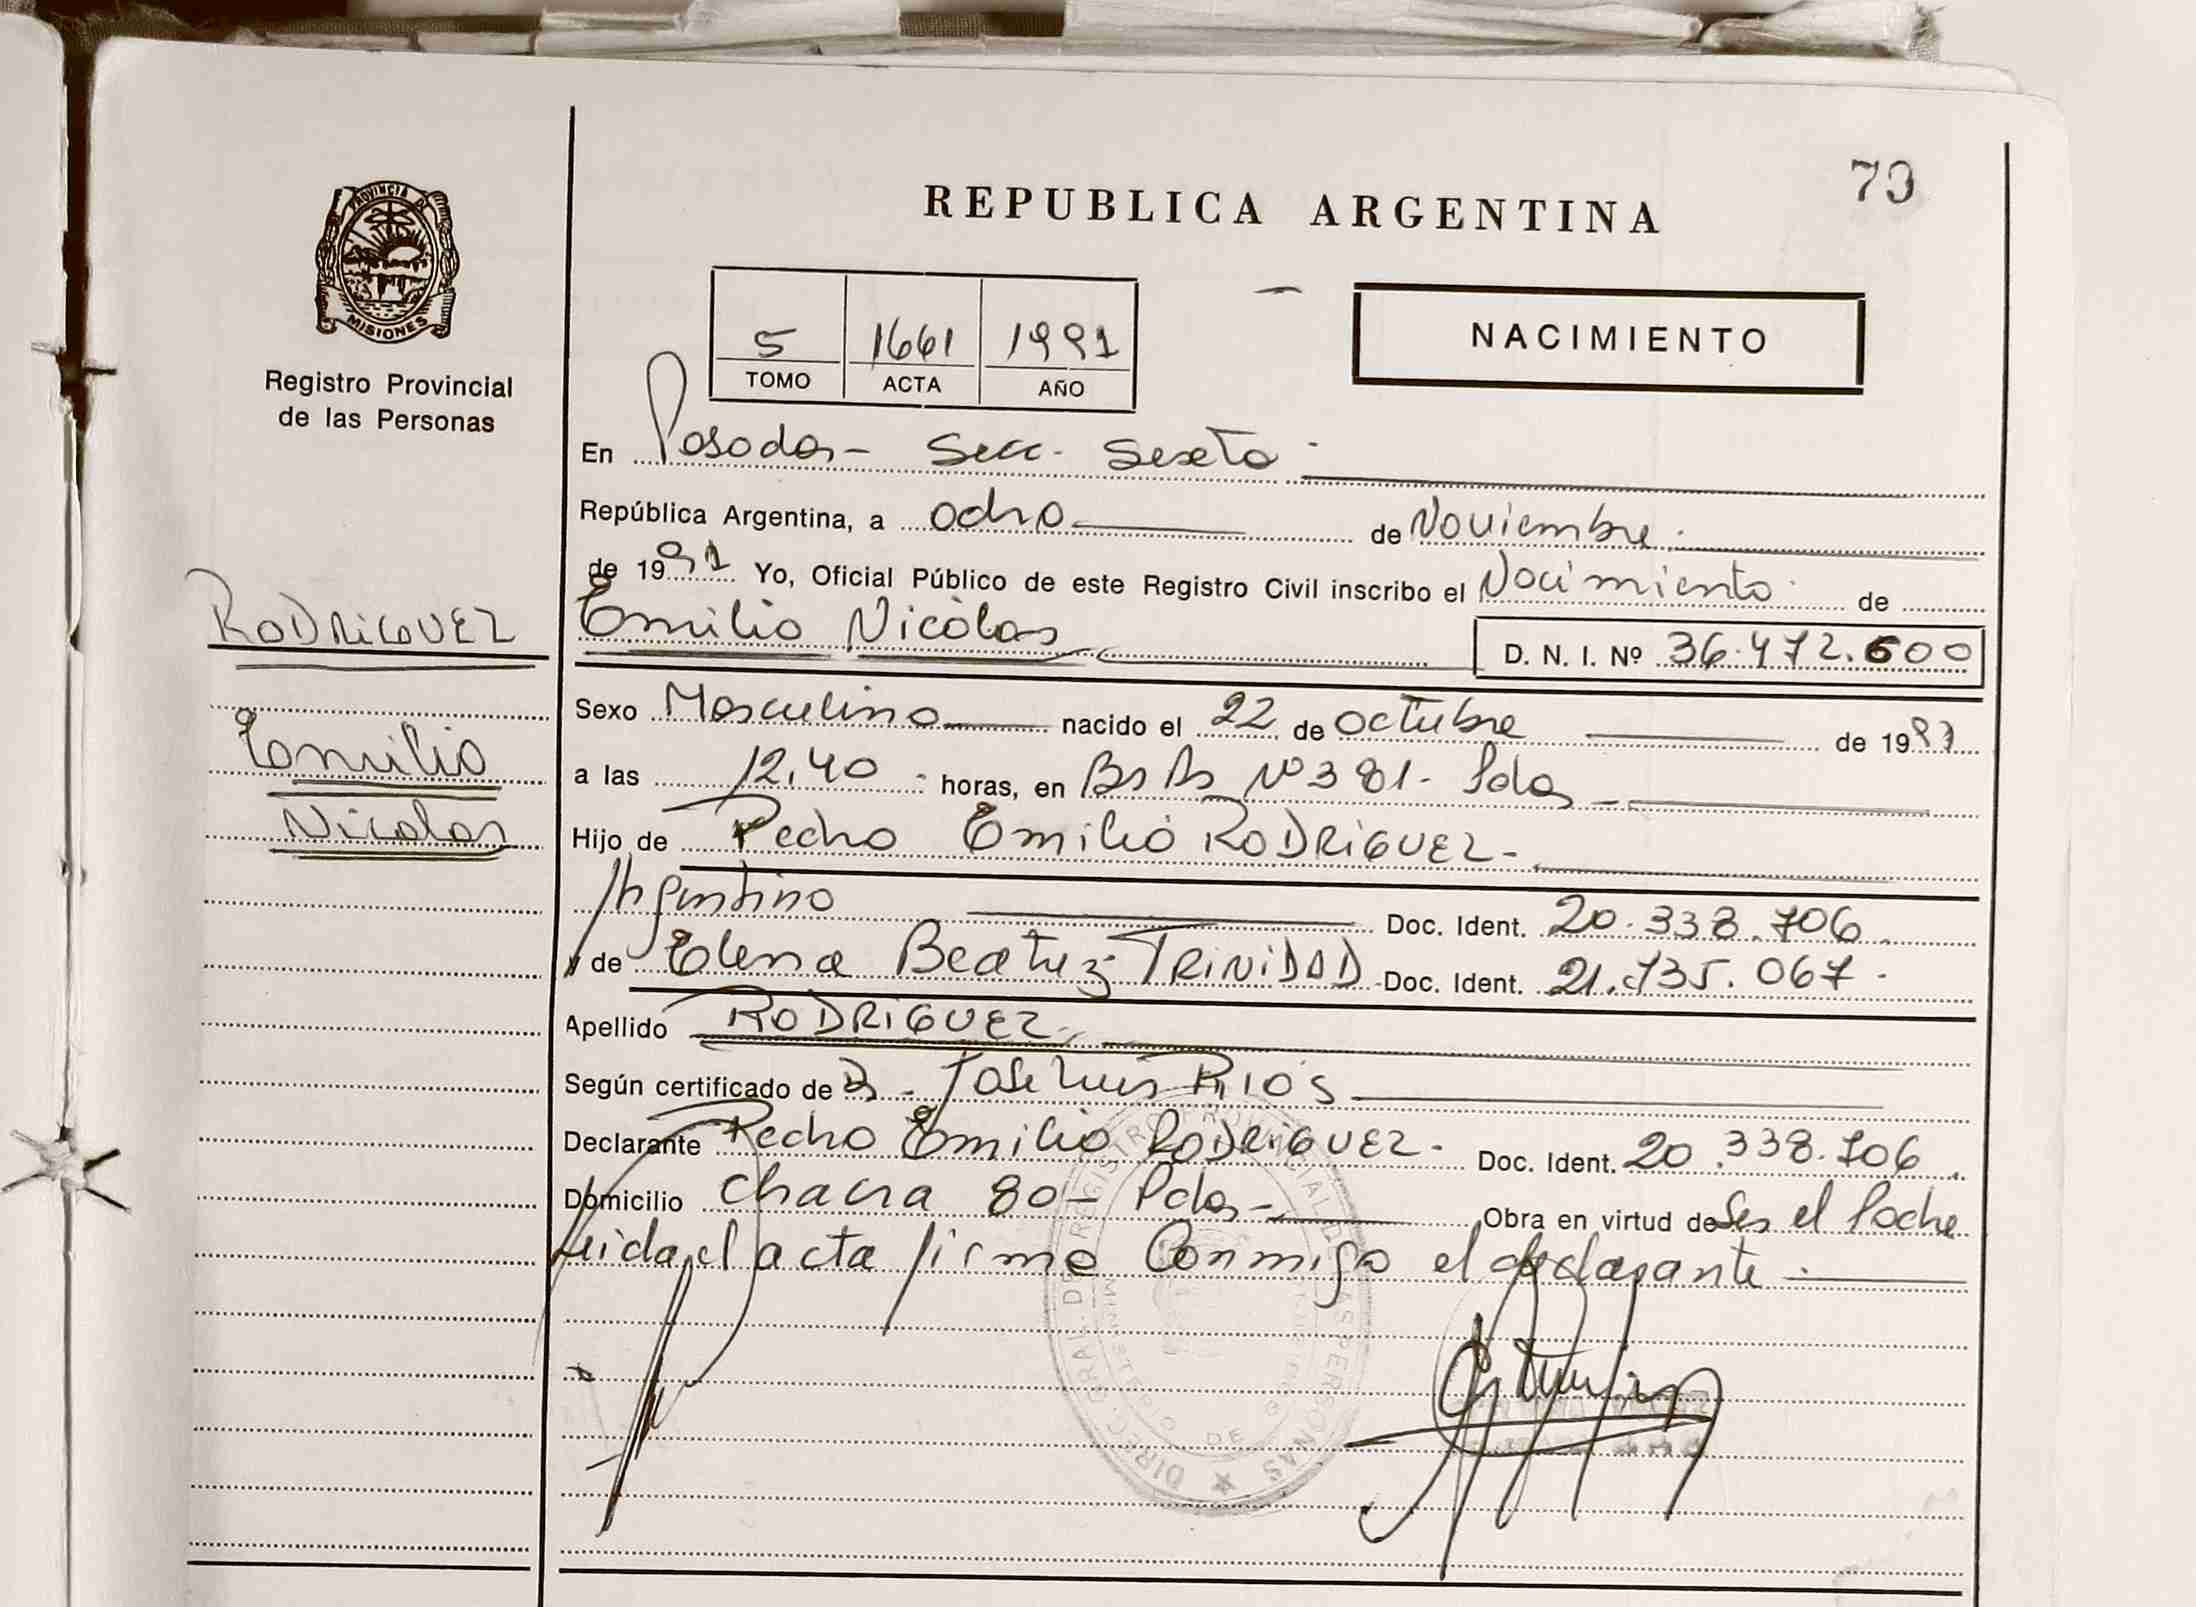 73
REPUBLICA ARGENTINA
PROVINCIA DE
MISIONES
Registro Provincial
de las Personas
5 1661 1991
TOMO ACTA AÑO
NACIMIENTO
En Posadas - Secc. Sexta
República Argentina, a ocho de Noviembre
de 1991 Yo, Oficial Público de este Registro Civil inscribo el Nacimiento de
RODRIGUEZ
Emilio Nicolas
D. N. I. Nº 36.472.600
Emilio
Nicolas
Sexo Masculino nacido el 22 de octubre de 1991
a las 12,40 horas, en Bs As Nº 381 - Pdas
Hijo de Pedro Emilio RODRIGUEZ -
Argentino Doc. Ident. 20.338.706
y de Elena Beatriz TRINIDAD Doc. Ident. 21.735.067
Apellido RODRIGUEZ
Según certificado de Jose Luis RIOS
Declarante Pedro Emilio RODRIGUEZ - Doc. Ident. 20.338.706
Domicilio Chacra 80 - Pdas - Obra en virtud de Ser el Padre
Leida el acta firma Conmigo el declarante
DIREC. GRAL. DE REGISTRO PROVINCIAL DE LAS PERSONAS